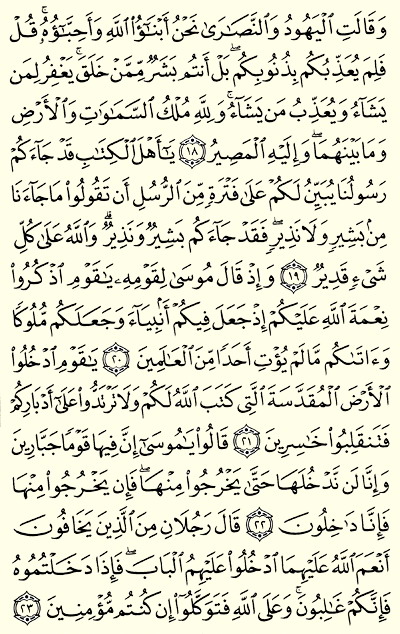 وَقَالَتِ ٱلْيَهُودُ وَٱلنَّصَـٰرَىٰ نَحْنُ أَبْنَـٰٓؤُا۟ ٱللَّهِ وَأَحِبَّـٰٓؤُهُۥ ۚ قُلْ
فَلِمَ يُعَذِّبُكُم بِذُنُوبِكُم ۖ بَلْ أَنتُم بَشَرٌ مِّمَّنْ خَلَقَ ۚ يَغْفِرُ لِمَن
يَشَآءُ وَيُعَذِّبُ مَن يَشَآءُ ۚ وَلِلَّهِ مُلْكُ ٱلسَّمَـٰوَٰتِ وَٱلْأَرْضِ
وَمَا بَيْنَهُمَا ۖ وَإِلَيْهِ ٱلْمَصِيرُ ١٨ يَـٰٓأَهْلَ ٱلْكِتَـٰبِ قَدْ جَآءَكُمْ
رَسُولُنَا يُبَيِّنُ لَكُمْ عَلَىٰ فَتْرَةٍ مِّنَ ٱلرُّسُلِ أَن تَقُولُوا۟ مَا جَآءَنَا
مِنۢ بَشِيرٍ وَلَا نَذِيرٍ ۖ فَقَدْ جَآءَكُم بَشِيرٌ وَنَذِيرٌ ۗ وَٱللَّهُ عَلَىٰ كُلِّ
شَىْءٍ قَدِيرٌ ١٩ وَإِذْ قَالَ مُوسَىٰ لِقَوْمِهِۦ يَـٰقَوْمِ ٱذْكُرُوا۟
نِعْمَةَ ٱللَّهِ عَلَيْكُمْ إِذْ جَعَلَ فِيكُمْ أَنۢبِيَآءَ وَجَعَلَكُم مُّلُوكًا
وَءَاتَىٰكُم مَّا لَمْ يُؤْتِ أَحَدًا مِّنَ ٱلْعَـٰلَمِينَ ٢٠ يَـٰقَوْمِ ٱدْخُلُوا۟
ٱلْأَرْضَ ٱلْمُقَدَّسَةَ ٱلَّتِى كَتَبَ ٱللَّهُ لَكُمْ وَلَا تَرْتَدُّوا۟ عَلَىٰٓ أَدْبَارِكُمْ
فَتَنقَلِبُوا۟ خَـٰسِرِينَ ٢١ قَالُوا۟ يَـٰمُوسَىٰٓ إِنَّ فِيهَا قَوْمًا جَبَّارِينَ
وَإِنَّا لَن نَّدْخُلَهَا حَتَّىٰ يَخْرُجُوا۟ مِنْهَا ۖ فَإِن يَخْرُجُوا۟ مِنْهَا
فَإِنَّا دَٰخِلُونَ ٢٢ قَالَ رَجُلَانِ مِنَ ٱلَّذِينَ يَخَافُونَ
أَنْعَمَ ٱللَّهُ عَلَيْهِمَا ٱدْخُلُوا۟ عَلَيْهِمُ ٱلْبَابَ ۖ فَإِذَا دَخَلْتُمُوهُ
فَإِنَّكُمْ غَـٰلِبُونَ ۚ وَعَلَى ٱللَّهِ فَتَوَكَّلُوٓا۟ إِن كُنتُم مُّؤْمِنِينَ ٢٣